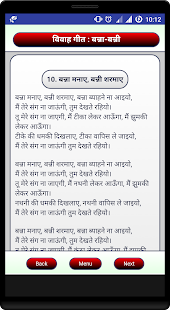 10:12
विवाह गीत : बन्ना-बन्नी
10. बन्ना मनाए, बन्नी शरमाए
बन्ना मनाए, बन्नी शरमाए, बन्ना ब्याहने ना आइयो,
मैं तेरे संग ना जाऊंगी, तुम देखते रहियो।
तू मेरे संग ना जाएगी, मैं टीका लेकर आऊँगा, मैं झुमकी
लेकर आऊँगा।
टीके की धमकी दिखलाए, टीका वापिस ले जाओ,
मैं तेरे संग ना जाऊंगी, तुम देखते रहियो।
बन्ना मनाए, बन्नी शरमाए, बन्ना ब्याहने ना आइयो,
मैं तेरे संग ना जाऊंगी, तुम देखते रहियो।
तू मेरे संग ना जाएगी, मैं नथनी लेकर आऊँगा, मैं झुमकी
लेकर आऊँगा।
नथनी की धमकी दिखलाए, नथनी वापिस ले जाओ,
मैं तेरे संग ना जाऊंगी, तुम देखते रहियो।
बन्ना मनाए, बन्नी शरमाए, बन्ना ब्याहने ना आइयो,
मैं तेरे संग ना जाऊंगी, तुम देखते रहियो।
Back Menu Next